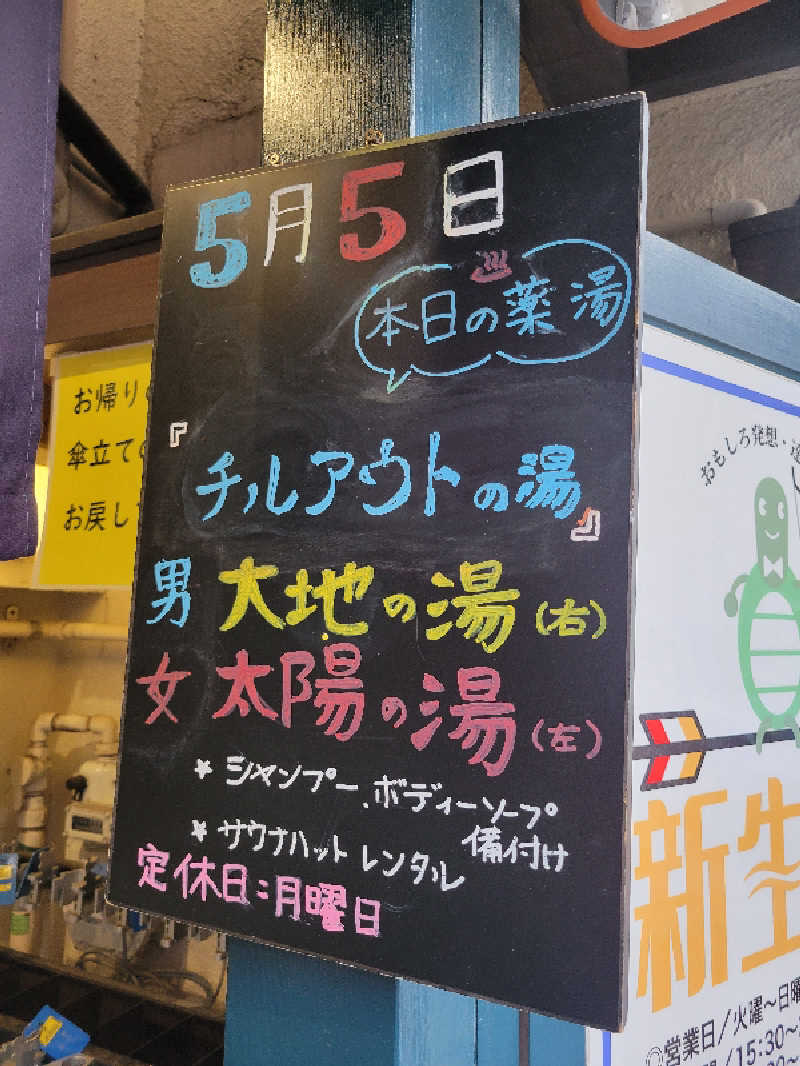 5月5日
♨
本日の薬湯
『チルアウトの湯』
男 大地の湯(右)
女 太陽の湯(左)
* シャンプー、ボディーソープ
備付け
* サウナハット レンタル
定休日:月曜日
お帰り
傘立て
お戻し
おもしろ発想・
新生
◎営業日/火曜～日曜
/15:30～